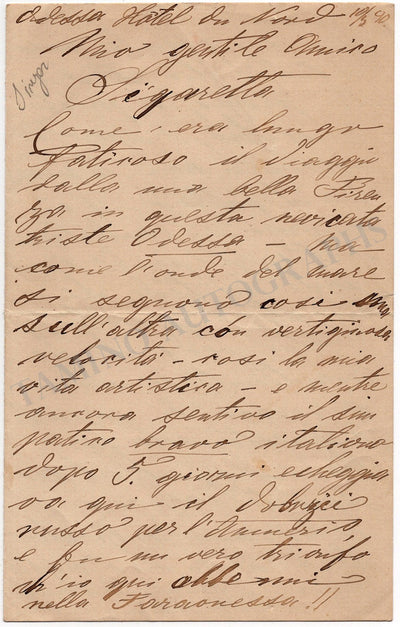 Odessa Hotel du Nord 10/3 90.
Mio gentile Amico
Singer
Sigaretta
Come era lungo
faticoso il viaggio
dalla mia bella Firen
ze in questa nevicata
triste Odessa - ma
come l'onde del mare
si segnono cosi una
sull'altra con vertiginosa
velocità - cosi la mia
vita artistica - e mentre
ancora sentivo il sim
patico bravo italiano
dopo 5. giorni echeggia
va qui il
russo per l'Amneris,
e fu un vero trionfo
ch'io qui ebbe
nella Faraonessa!!
TAMINO AUTOGRAPHS